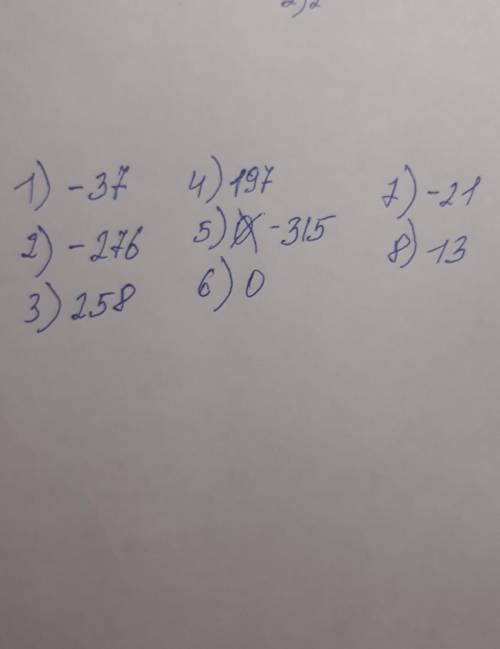 1) -37
2) -276
3) 258
4) 197
5) -315
6) 0
7) -21
8) 13